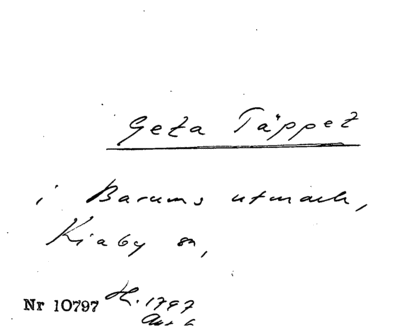 Geta Täppet
i Barums utmark,
Kiaby sn,
Nr 10797 H. 1797